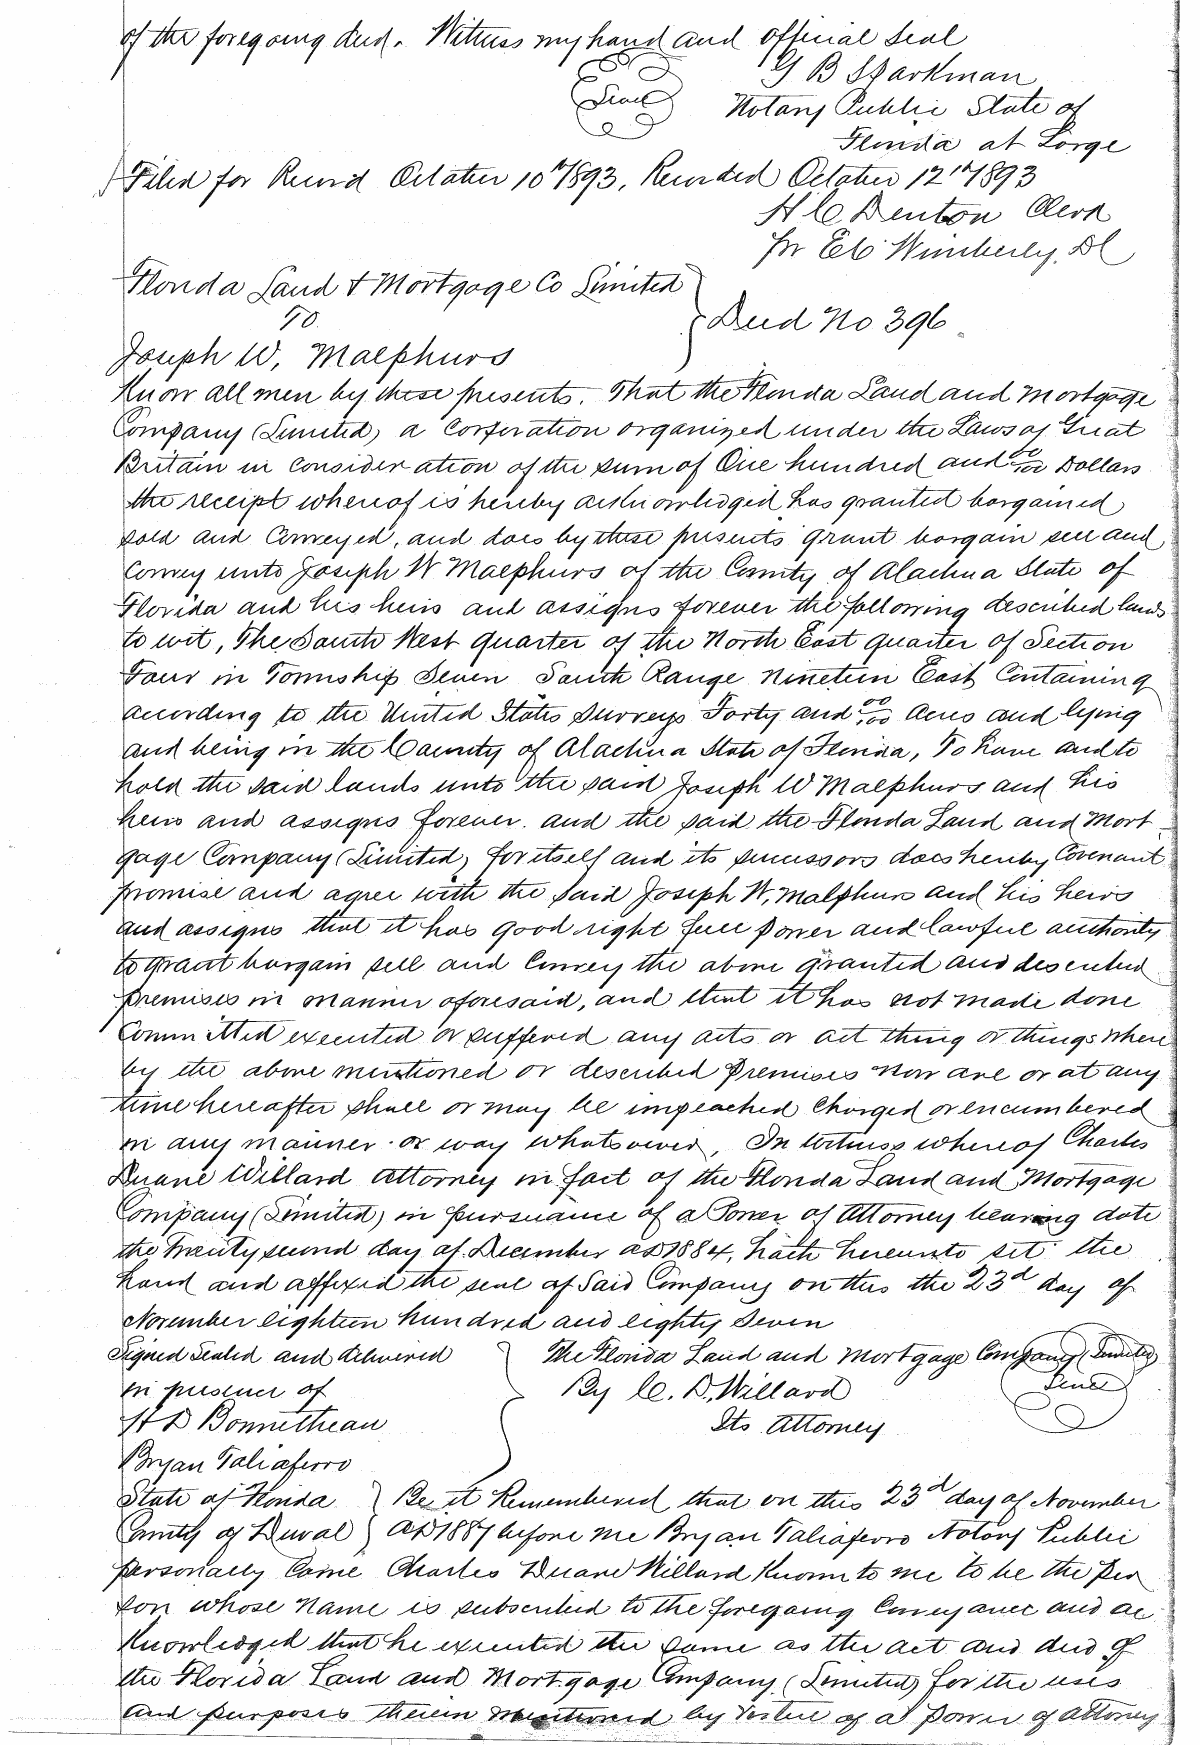 of the foregoing deed. Witness my hand and official seal
G B Sparkman
Seal
Notary Public State of
Florida at Large
Filed for Record October 10th 1893, Recorded October 12th 1893
H C Denton Clerk
pr E C Wimberly, DC
Florida Land & Mortgage Co Limited
To
Deed No 396
Joseph W. Malphurs
Know all men by these presents. That the Florida Land and Mortgage
Company (Limited) a Corporation organized under the Laws of Great
Britain in consideration of the sum of One hundred and 00/100 Dollars
the receipt whereof is hereby acknowledged has granted bargained
sold and Conveyed, and does by these presents grant bargain sell and
Convey unto Joseph W Malphurs of the County of Alachua State of
Florida and his heirs and assigns forever the following described lands
to wit, The South West quarter of the North East quarter of Section
Four in Township Seven South Range nineteen East Containing
according to the United States surveys Forty and 00/100 Acres and lying
and being in the County of Alachua State of Florida, To have and to
hold the said lands unto the said Joseph W Malphurs and his
heirs and assigns forever. and the said the Florida Land and Mort
gage Company (Limited) for itself and its successors does hereby Covenant
promise and agree with the said Joseph W, Malphurs and his heirs
and assigns that it has good right full power and lawful authority
to grant bargain sell and Convey the above granted and described
premises in manner aforesaid, and that it has not made done
Committed executed or suffered any acts or act thing or things where
by the above mentioned or described premises now are or at any
time hereafter shall or may be impeached Charged or encumbered
in any manner or way whatsoever, In witness whereof Charles
Duane Willard Attorney in fact of the Florida Land and Mortgage
Company (Limited) in pursuance of a Power of Attorney bearing date
the Twenty second day of December AD 1884, hath hereunto set the
hand and affixed the seal of Said Company on this the 23d day of
November eighteen hundred and eighty seven
Signed Sealed and delivered The Florida Land and Mortgage Company (Limited)
in presence of By C. D. Willard Seal
H D Bonnetheau Its Attorney
Bryan Taliaferro
State of Florida Be it Remembered that on this 23d day of November
County of Duval AD 1887 before me Bryan Taliaferro Notary Public
personally Came Charles Duane Willard Known to me to be the per
son whose name is subscribed to the foregoing Conveyance and ac
knowledged that he executed the same as the act and deed of
the Florida Land and Mortgage Company (Limited) for the uses
and purposes therein mentioned by virtue of a power of Attorney